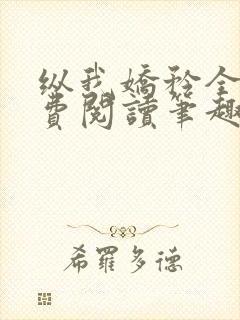 纵我娇矜全
费阅读笔趣
希羅多德